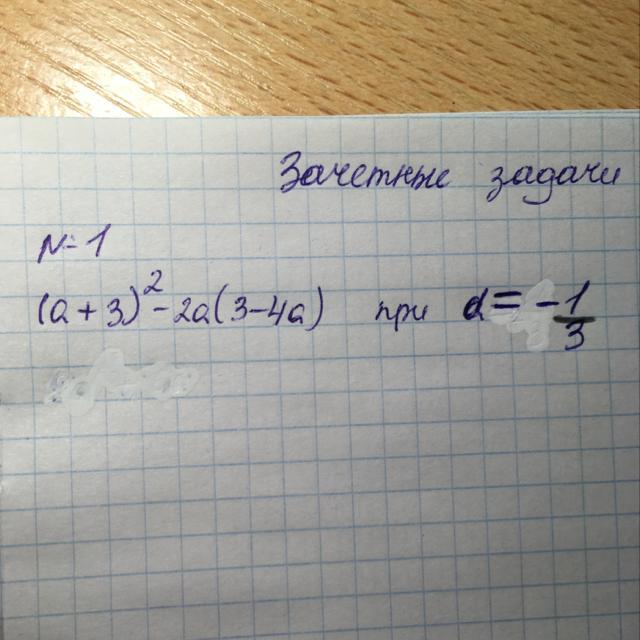 Зачетные задачи
N=1
(a+3)²-2a(3-4a) при a=-1/3